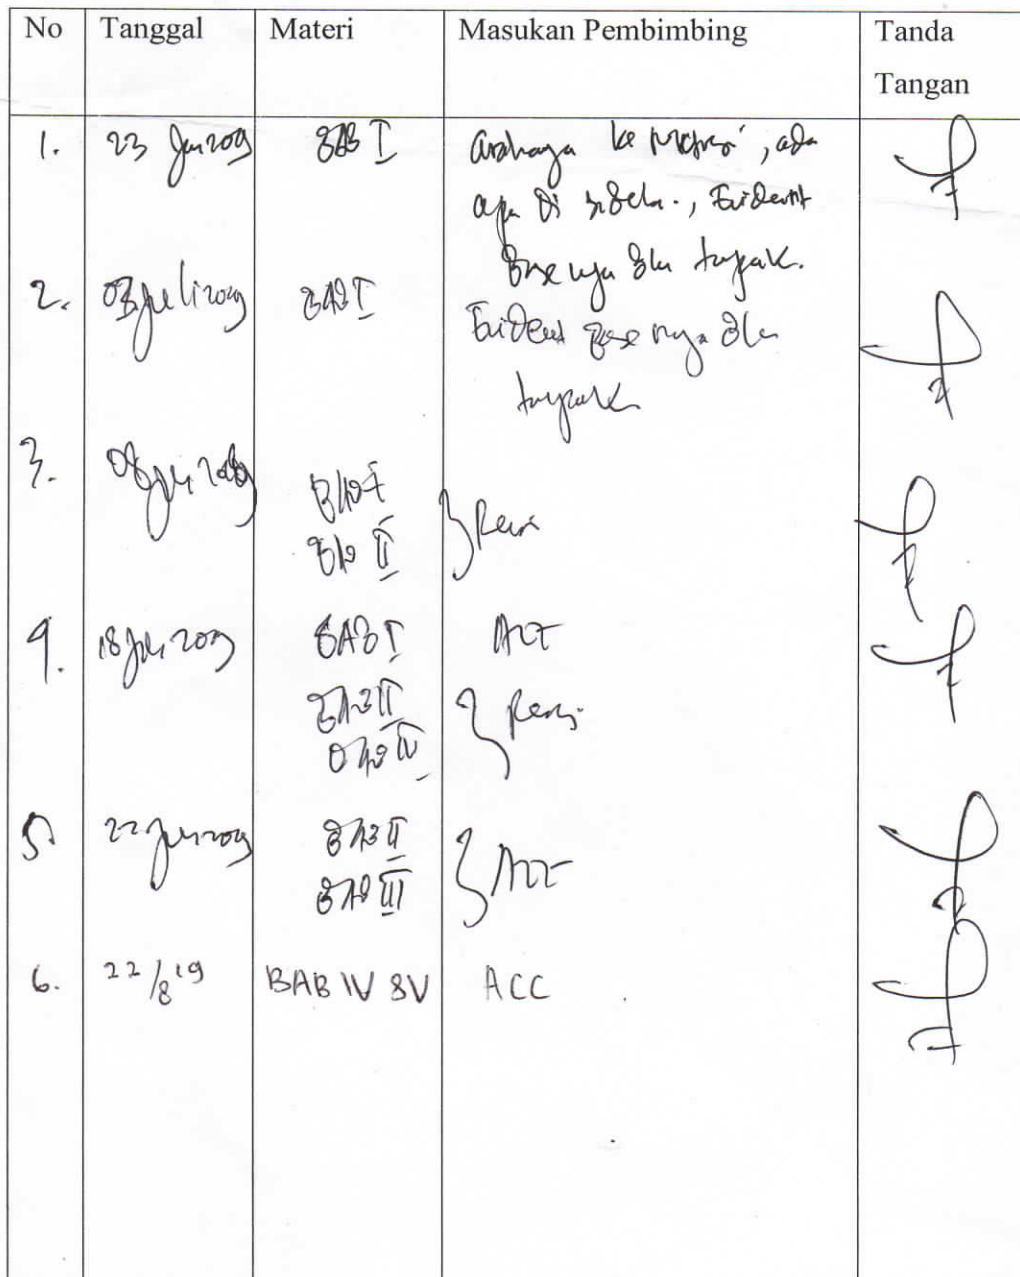 No Tanggal Materi Masukan Pembimbing Tanda
Tangan
1. 23 Jun 2019 BAB I arahnya ke , ada
apa di Evident
Base nya blm tampak.
2. 03 Juli 2019 BAB I Evident Base nya blm
tampak
3. 08 Juli 2019
BAB I
BAB II Revisi
4. 18 Juli 2019 BAB I ACC
BAB II Revisi
BAB IV
5 22 Juli 2019 BAB II
BAB III ACC
6. 22/8 19 BAB IV & V ACC